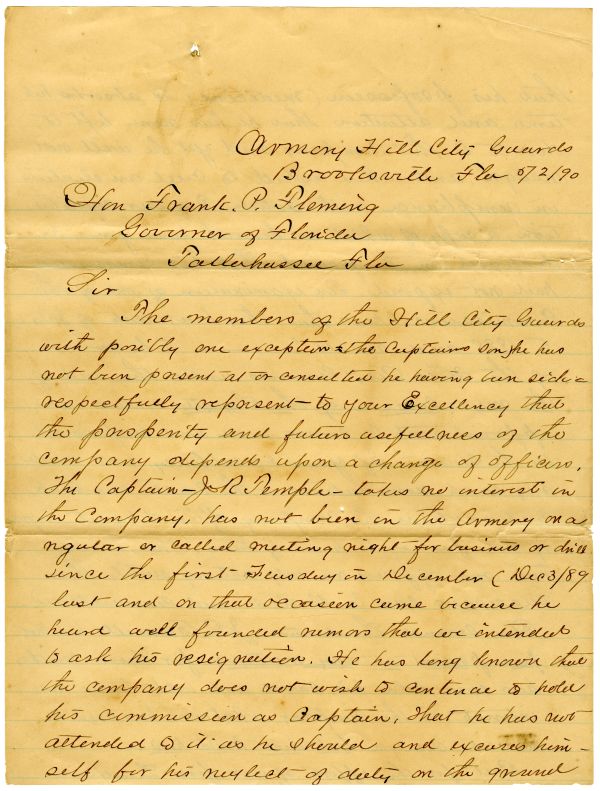 Armory Hill City Guards
Brooksville Fla 5/2/90
Hon Frank. P. Fleming
Governer of Florida
Tallahassee Fla
Sir
The members of the Hill City Guards
with posibly one exception the Captains son, he has
not been present at or consulted he having been sick -
respectfully represent to your Excellency that
the prosperity and future usefulness of the
company depends upon a change of officers.
The Captain - J R Temple - takes no interest in
the Company, has not been in the Armory on a
regular or called meeting night for business or drill
since the first Tuesday in December (Dec 3/89
last and on that occasion came because he
heard well founded rumors that we intended
to ask his resignation. He has long known that
the company does not wish to continue to hold
his commission as Captain, that he has not
attended to it as he should and excuses him-
self for his neglect of duty on the ground